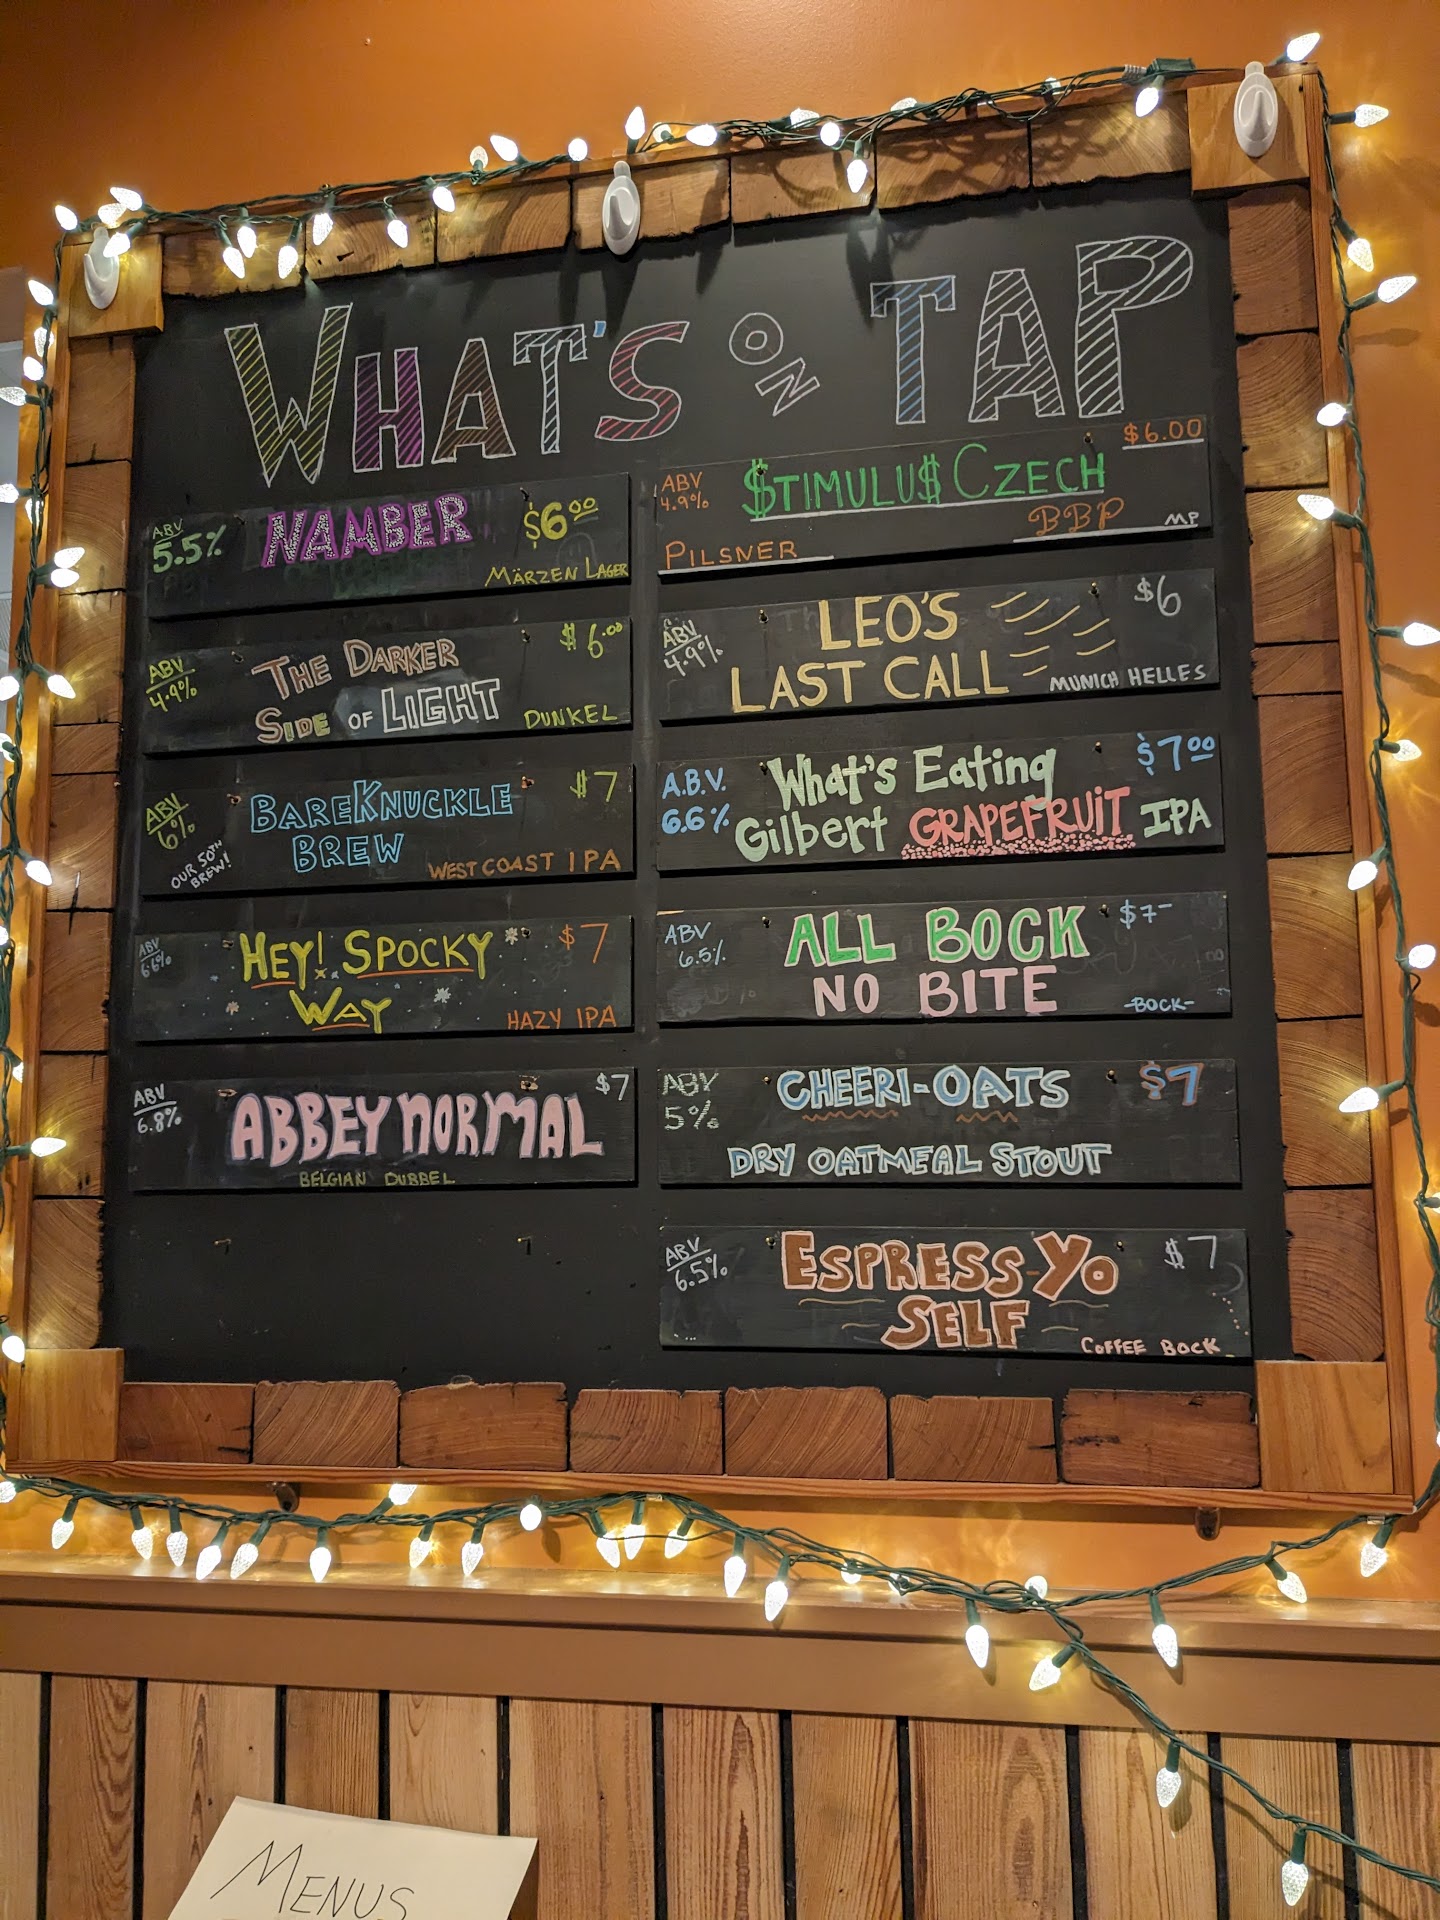 WHAT'S ON TAP
ABV
5.5%
NAMBER
$6.00
MÄRZEN LAGER
ABV
4.9%
THE DARKER
SIDE OF LIGHT
$6.00
DUNKEL
ABV
6%
OUR 50TH
BREW!
BAREKNUCKLE
BREW
$7
WEST COAST IPA
ABV
6.6%
HEY! SPOCKY
WAY
$7
HAZY IPA
ABV
6.8%
ABBEY NORMAL
$7
BELGIAN DUBBEL
ABV
4.9%
$TIMULU$ CZECH
$6.00
PILSNER
BBP
MP
ABV
4.9%
LEO'S
LAST CALL
$6
MUNICH HELLES
A.B.V.
6.6%
What's Eating
Gilbert GRAPEFRUIT IPA
$7.00
ABV
6.5%
ALL BOCK
NO BITE
$7-
-BOCK-
ABV
5%
CHEERI-OATS
$7
DRY OATMEAL STOUT
ABV
6.5%
ESPRESS-YO
SELF
$7
COFFEE BOCK
MENUS